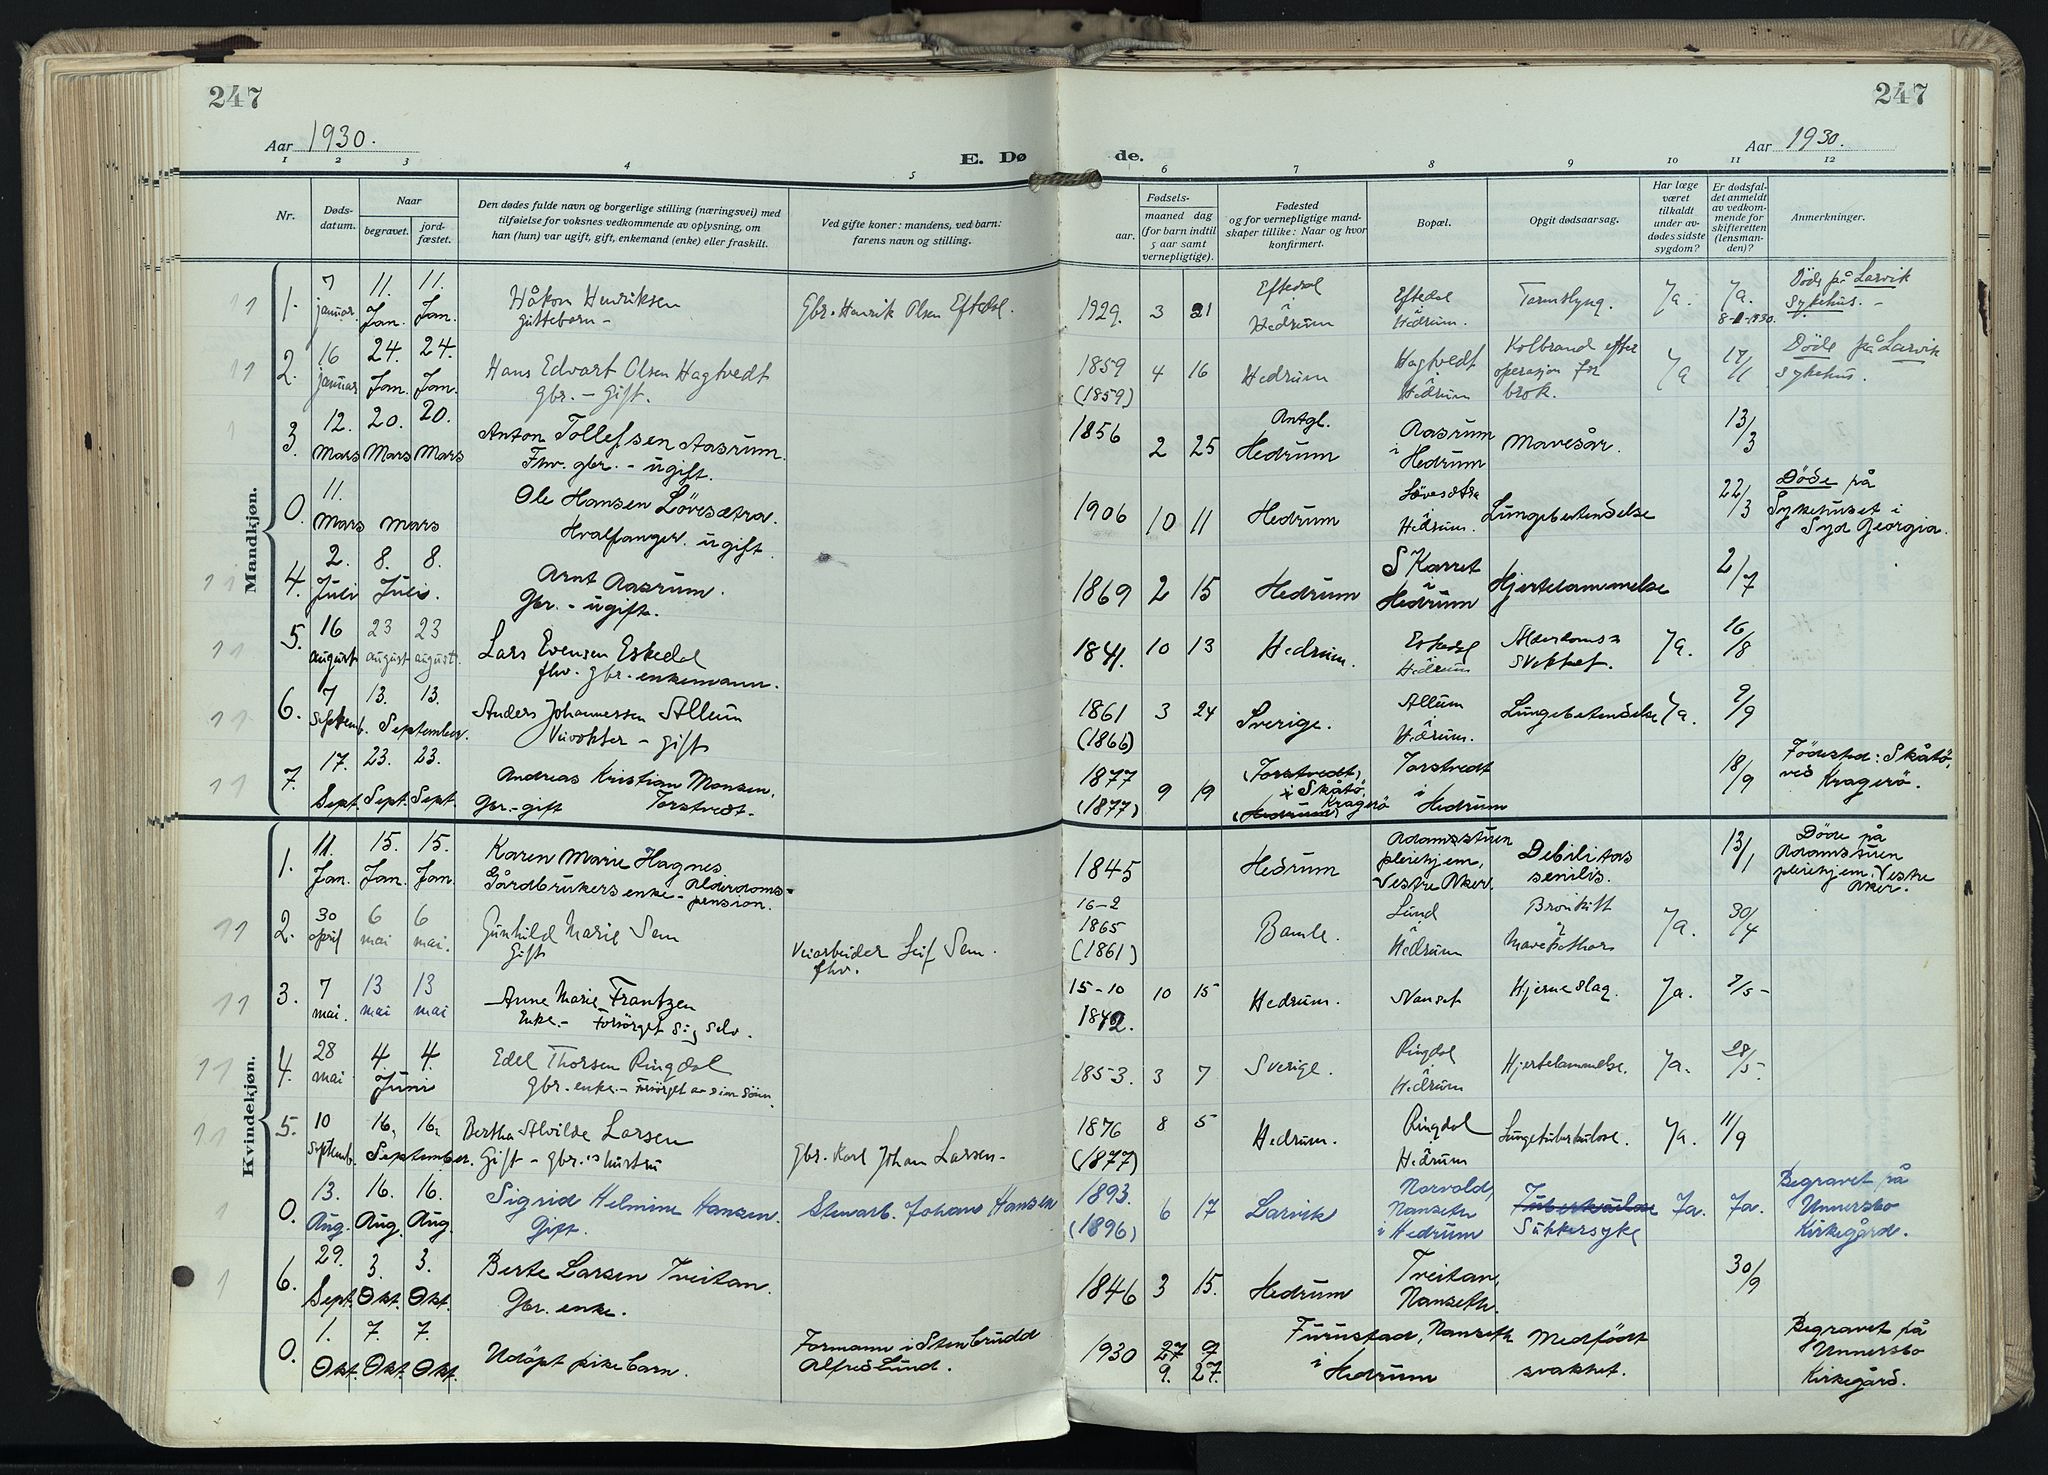 247
247
Aar 1930.
Aar 1930.
E. Dø
de.
1 2 3 4 5 6 7 8 9 10 11 12
Nr.
Dødsdatum.
Naar
begravet.
jordfæstet.
Den dødes fulde navn og borgerlige stilling (næringsvei) med
tilføielse for voksnes vedkommende av oplysning, om
han (hun) var ugift, gift, enkemand (enke) eller fraskilt.
Ved gifte koner: mandens, ved barn:
farens navn og stilling.
Fødsels-
aar.
maaned dag
(for barn indtil
5 aar samt
vernepligtige).
Fødested
og for vernepligtige mand-
skaper tillike: Naar og hvor
konfirmert.
Bopæl.
Opgit dødsaarsag.
Har læge
været
tilkaldt
under av-
dødes sidste
sygdom?
Er dødsfal-
det anmeldt
av vedkom-
mende for
skifteretten
(lensman-
den)?
Anmerkninger.
Mandkjøn.
1. 7 januar 11. Jan. 11. Jan. Håkon Henriksen Guttebarn - Gbr. Henrik Olsen Eftedal. 1929. 3 21 Eftedal i Hedrum Eftedal i Hedrum. Tarmslyng. Ja. Ja. Døde på Larvik sykehus. -
2. 16 januar 24. Jan. 24. Jan. Hans Edvart Olsen Hagtvedt gbr. - gift. 1859 (1859) 4 16 Hedrum Hagtvedt i Hedrum Kolbrand efter operasjon for brok. Ja 17/1 Døde på Larvik sykehus.
3. 12. Mars 20. Mars 20. Mars Anton Tollefsen Aasrum. Fhv. gbr. - ugift. 1856 2 25 Hedrum Aasrum i Hedrum Mavesår. 13/3
0. 11. Mars Mars Ole Hansen Løvesætra. Hvalfanger. ugift. 1906 10 11 Hedrum Løvesætra i Hedrum. Lungebetendelse 22/3 Døde på Sykehuset i Syd Georgia.
4. 2. Juli 8. 8. Juli. Arnt Aasrum. Gbr. - ugift. 1869 2 15 Hedrum S Karret i Hedrum Hjertelammelse 2/7
5. 16 august 23 august 23 august. Lars Evensen Eskedal fhv. gbr. enkemann. 1841. 10 13 Hedrum. Eskedal i Hedrum Alderdoms- svekket. Ja. 16/8
6. 7 Septemb. 13. 13. September. Anders Johannessen Allum Veivokter - gift 1861 (1866) 3 24 Sverige. Allum i Hedrum. Lungebetendelse Ja. 9/9
7. 17. Sept. 23. Sept. 23. Sept. Andreas Kristian Monsen, Gbr. - gift Torstvedt. 1877 (1877) 9 19 (Torstvedt) i Skåtö, Kragerö (Hedrum) Torstvedt i Hedrum 18/9 Födestad: Skåtö, ved Kragerö.
Kvindekjøn.
1. 11. Jan. 15. Jan. 15. Jan. Karen Marie Hagnes Gårdbrukers enke - Alderdoms- pension. 1845 Hedrum Adamsstuen pleiehjem, Vestre Aker. Debilitas senilis. 13/1 Döde på Adamstuen pleiehjem. Vestre Aker.
2. 30 april 6 mai 6 mai. Gunhild Marie Sem Gift Veiarbeider Leif Sem. fhv. 16-2 1865 (1861) Bamle. Lund i Hedrum Bronkitt Ja. 30/4
3. 7 mai. 13 mai 13 mai Anne Marie Frantzen Enke. - Forsörget sig selv. 15-10 1842. 10 15 Hedrum. Nanset Hjerneslag. Ja. 7/5-
4. 28 mai 4. 4. Juni Edel Thorsen Ringdal gbr. enke. - Forsörget av sin sönn. 1853. 3 7 Sverige. Ringdal i Hedrum Hjertelammelse. Ja. 28/5.
5. 10 Septemb. 16, 16, September. Bertha Alvilde Larsen Gift - gbr.'s hustru gbr. Karl Johan Larsen - 1876 (1877) 8 5 Hedrum. Ringdal i Hedrum Lungetuberkulose. Ja. 11/9
0. 13. Aug. 16. Aug. 16. Aug. Sigrid Helmine Hansen. Gift. Stenarb. Johan Hansen 1893. (1896) 6 17 Larvik Norvold, Nanseth i Hedrum Tuberkulose Sukkersyke Ja. Ja. Begravet på Unnersbo Kirkegård.
6. 29. Sept. 3. Okt. 3. Okt. Berte Larsen Treitan. Gbr. enke. 1846 3 15. Hedrum Treitan, Nanseth. 30/9
0. 1. Okt. 7. Okt. 7. Okt. Udöpt pikebarn. Formann i Stenbrudd Alfred Lund. 1930 27 9 9. 27. Furustad, Nanseth i Hedrum Medfödt svakhet. Begravet på Unnersbo Kirkegård.